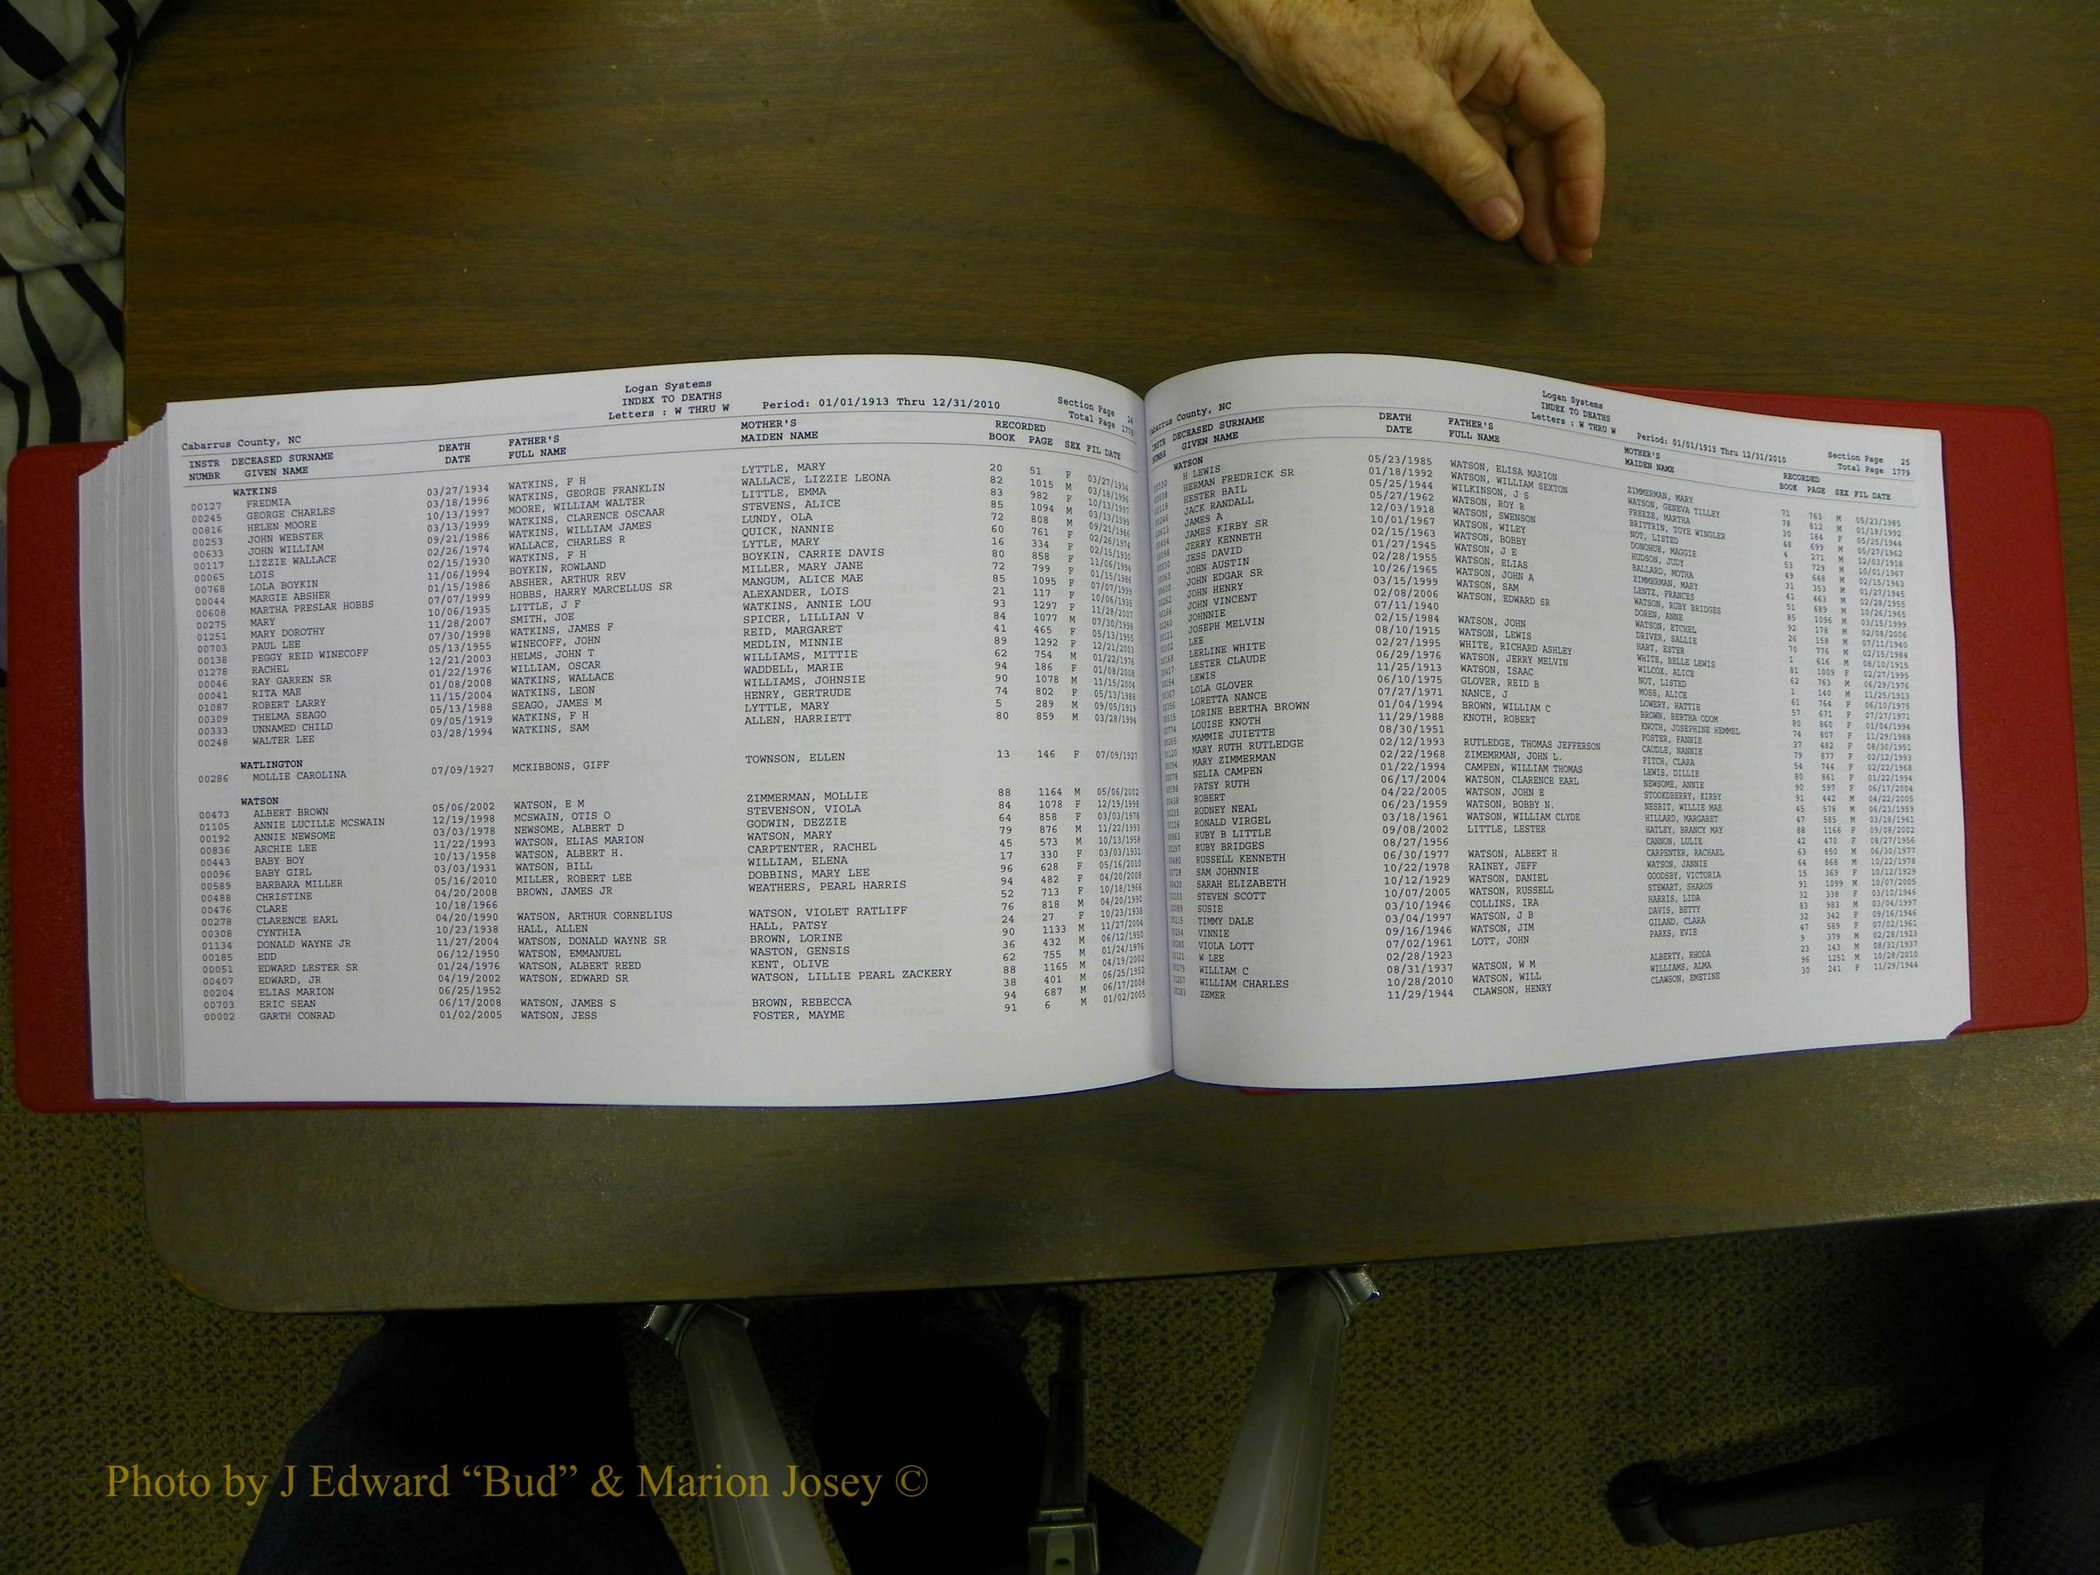 Logan Systems
INDEX TO DEATHS
Letters : W THRU W Period: 01/01/1913 Thru 12/31/2010
Section Page 24
Total Page 1778
Cabarrus County, NC
INSTR DECEASED SURNAME DEATH FATHER'S MOTHER'S RECORDED
NUMBR GIVEN NAME DATE FULL NAME MAIDEN NAME BOOK PAGE SEX FIL DATE
WATKINS
00127 FREDMIA 03/27/1934 WATKINS, F H LYTTLE, MARY 20 51 F 03/27/1934
00245 GEORGE CHARLES 03/18/1996 WATKINS, GEORGE FRANKLIN WALLACE, LIZZIE LEONA 82 1015 M 03/18/1996
00816 HELEN MOORE 10/13/1997 MOORE, WILLIAM WALTER LITTLE, EMMA 83 982 F 10/13/1997
00253 JOHN WEBSTER 03/13/1999 WATKINS, CLARENCE OSCAAR STEVENS, ALICE 85 1094 M 03/13/1999
00633 JOHN WILLIAM 09/21/1986 WATKINS, WILLIAM JAMES LUNDY, OLA 72 808 M 09/21/1986
00117 LIZZIE WALLACE 02/26/1974 WALLACE, CHARLES R QUICK, NANNIE 60 761 F 02/26/1974
00065 LOIS 02/15/1930 WATKINS, F H LYTLE, MARY 16 334 F 02/15/1930
00768 LOLA BOYKIN 11/06/1994 BOYKIN, ROWLAND BOYKIN, CARRIE DAVIS 80 858 F 11/06/1994
00044 MARGIE ABSHER 01/15/1986 ABSHER, ARTHUR REV MILLER, MARY JANE 72 799 F 01/15/1986
00608 MARTHA PRESLAR HOBBS 07/07/1999 HOBBS, HARRY MARCELLUS SR MANGUM, ALICE MAE 85 1095 F 07/07/1999
00275 MARY 10/06/1935 LITTLE, J F ALEXANDER, LOIS 21 117 F 10/06/1935
01251 MARY DOROTHY 11/28/2007 SMITH, JOE WATKINS, ANNIE LOU 93 1297 F 11/28/2007
00703 PAUL LEE 07/30/1998 WATKINS, JAMES F SPICER, LILLIAN V 84 1077 M 07/30/1998
00138 PEGGY REID WINECOFF 05/13/1955 WINECOFF, JOHN REID, MARGARET 41 465 F 05/13/1955
01278 RACHEL 12/21/2003 HELMS, JOHN T MEDLIN, MINNIE 89 1292 F 12/21/2003
00046 RAY GARREN SR 01/22/1976 WILLIAM, OSCAR WILLIAMS, MITTIE 62 754 M 01/22/1976
00041 RITA MAE 01/08/2008 WATKINS, WALLACE WADDELL, MARIE 94 186 F 01/08/2008
01087 ROBERT LARRY 11/15/2004 WATKINS, LEON WILLIAMS, JOHNSIE 90 1078 M 11/15/2004
00309 THELMA SEAGO 05/13/1988 SEAGO, JAMES M HENRY, GERTRUDE 74 802 F 05/13/1988
00333 UNNAMED CHILD 09/05/1919 WATKINS, F H LYTTLE, MARY 5 289 M 09/05/1919
00248 WALTER LEE 03/28/1994 WATKINS, SAM ALLEN, HARRIETT 80 859 M 03/28/1994
WATLINGTON
00286 MOLLIE CAROLINA 07/09/1927 MCKIBBONS, GIFF TOWNSON, ELLEN 13 146 F 07/09/1927
WATSON
00473 ALBERT BROWN 05/06/2002 WATSON, E M ZIMMERMAN, MOLLIE 88 1164 M 05/06/2002
01105 ANNIE LUCILLE MCSWAIN 12/19/1998 MCSWAIN, OTIS O STEVENSON, VIOLA 84 1078 F 12/19/1998
00192 ANNIE NEWSOME 03/03/1978 NEWSOME, ALBERT D GODWIN, DEZZIE 64 858 F 03/03/1978
00836 ARCHIE LEE 11/22/1993 WATSON, ELIAS MARION WATSON, MARY 79 876 M 11/22/1993
00443 BABY BOY 10/13/1958 WATSON, ALBERT H. CARPTENTER, RACHEL 45 573 M 10/13/1958
00096 BABY GIRL 03/03/1931 WATSON, BILL WILLIAM, ELENA 17 330 F 03/03/1931
00589 BARBARA MILLER 05/16/2010 MILLER, ROBERT LEE DOBBINS, MARY LEE 96 628 F 05/16/2010
00488 CHRISTINE 04/20/2008 BROWN, JAMES JR WEATHERS, PEARL HARRIS 94 482 F 04/20/2008
00476 CLARE 10/18/1966 52 713 F 10/18/1966
00278 CLARENCE EARL 04/20/1990 WATSON, ARTHUR CORNELIUS WATSON, VIOLET RATLIFF 76 818 M 04/20/1990
00308 CYNTHIA 10/23/1938 HALL, ALLEN HALL, PATSY 24 27 F 10/23/1938
01134 DONALD WAYNE JR 11/27/2004 WATSON, DONALD WAYNE SR BROWN, LORINE 90 1133 M 11/27/2004
00185 EDD 06/12/1950 WATSON, EMMANUEL WASTON, GENSIS 36 432 M 06/12/1950
00051 EDWARD LESTER SR 01/24/1976 WATSON, ALBERT REED KENT, OLIVE 62 755 M 01/24/1976
00407 EDWARD, JR 04/19/2002 WATSON, EDWARD SR WATSON, LILLIE PEARL ZACKERY 88 1165 M 04/19/2002
00204 ELIAS MARION 06/25/1952 38 401 M 06/25/1952
00703 ERIC SEAN 06/17/2008 WATSON, JAMES S BROWN, REBECCA 94 687 M 06/17/2008
00002 GARTH CONRAD 01/02/2005 WATSON, JESS FOSTER, MAYME 91 6 M 01/02/2005
Logan Systems
INDEX TO DEATHS
Letters : W THRU W Period: 01/01/1913 Thru 12/31/2010
Section Page 25
Total Page 1779
Cabarrus County, NC
INSTR DECEASED SURNAME DEATH FATHER'S MOTHER'S RECORDED
NUMBR GIVEN NAME DATE FULL NAME MAIDEN NAME BOOK PAGE SEX FIL DATE
WATSON
H LEWIS 05/23/1985 WATSON, ELISA MARION ZIMMERMAN, MARY 71 763 M 05/23/1985
HERMAN FREDRICK SR 01/18/1992 WATSON, WILLIAM SEXTON WATSON, GENEVA TILLEY 78 812 M 01/18/1992
HESTER BAIL 05/25/1944 WILKINSON, J S FREEZE, MARTHA 30 184 F 05/25/1944
JACK RANDALL 05/27/1962 WATSON, ROY R BRITTRIN, TOYE WINGLER 48 699 M 05/27/1962
JAMES A 12/03/1918 WATSON, SWENSON NOT, LISTED 4 271 M 12/03/1918
JAMES KIRBY SR 10/01/1967 WATSON, WILEY DONOHUE, MAGGIE 53 729 M 10/01/1967
JERRY KENNETH 02/15/1963 WATSON, BOBBY HUDSON, JUDY 49 648 M 02/15/1963
JESS DAVID 01/27/1945 WATSON, J E BALLARD, MOTHA 31 353 M 01/27/1945
JOHN AUSTIN 02/28/1955 WATSON, ELIAS ZIMMERMAN, MARY 41 463 M 02/28/1955
JOHN EDGAR SR 10/26/1965 WATSON, JOHN A LENTZ, FRANCES 51 689 M 10/26/1965
JOHN HENRY 03/15/1999 WATSON, SAM WATSON, RUBY BRIDGES 85 1096 M 03/15/1999
JOHN VINCENT 02/08/2006 WATSON, EDWARD SR DOREN, ANNE 92 178 M 02/08/2006
JOHNNIE 07/11/1940 WATSON, ETCHEL 26 158 M 07/11/1940
JOSEPH MELVIN 02/15/1984 WATSON, JOHN DRIVER, SALLIE 70 776 M 02/15/1984
LEE 08/10/1915 WATSON, LEWIS HART, ESTER 1 616 M 08/10/1915
LERLINE WHITE 02/27/1995 WHITE, RICHARD ASHLEY WHITE, BELLE LEWIS 81 1009 F 02/27/1995
LESTER CLAUDE 06/29/1976 WATSON, JERRY MELVIN WILCOX, ALICE 62 763 M 06/29/1976
LEWIS 11/25/1913 WATSON, ISAAC NOT, LISTED 1 140 M 11/25/1913
LOLA GLOVER 06/10/1975 GLOVER, REID B MOSS, ALICE 61 764 F 06/10/1975
LORETTA NANCE 07/27/1971 NANCE, J LOWERY, HATTIE 57 671 F 07/27/1971
LORINE BERTHA BROWN 01/04/1994 BROWN, WILLIAM C BROWN, BERTHA ODOM 80 860 F 01/04/1994
LOUISE KNOTH 11/29/1988 KNOTH, ROBERT KNOTH, JOSEPHINE HEMMEL 74 807 F 11/29/1988
MAMMIE JUIETTE 08/30/1951 FOSTER, FANNIE 37 482 F 08/30/1951
MARY RUTH RUTLEDGE 02/12/1993 RUTLEDGE, THOMAS JEFFERSON CAUDLE, NANNIE 79 877 F 02/12/1993
MARY ZIMMERMAN 02/22/1968 ZIMEMRMAN, JOHN L. PITCH, CLARA 54 744 F 02/22/1968
NELIA CAMPEN 01/22/1994 CAMPEN, WILLIAM THOMAS LEWIS, DILLIE 80 861 F 01/22/1994
PATSY RUTH 06/17/2004 WATSON, CLARENCE EARL NEWSOME, ANNIE 90 597 F 06/17/2004
ROBERT 04/22/2005 WATSON, JOHN E STOOKDBERRY, KIRBY 91 442 M 04/22/2005
RODNEY NEAL 06/23/1959 WATSON, BOBBY N. NESBIT, WILLIE MAE 45 578 M 06/23/1959
RONALD VIRGEL 03/18/1961 WATSON, WILLIAM CLYDE HILLARD, MARGARET 47 585 M 03/18/1961
RUBY B LITTLE 09/08/2002 LITTLE, LESTER HATLEY, BRANCY MAY 88 1166 F 09/08/2002
RUBY BRIDGES 08/27/1956 CANNON, LULIE 42 470 F 08/27/1956
RUSSELL KENNETH 06/30/1977 WATSON, ALBERT H CARPENTER, RACHAEL 63 850 M 06/30/1977
SAM JOHNNIE 10/22/1978 RAINEY, JEFF WATSON, JANNIE 64 868 M 10/22/1978
SARAH ELIZABETH 10/12/1929 WATSON, DANIEL GOODSBY, VICTORIA 15 369 F 10/12/1929
STEVEN SCOTT 10/07/2005 WATSON, RUSSELL STEWART, SHARON 91 1099 M 10/07/2005
SUSIE 03/10/1946 COLLINS, IRA HARRIS, LIDA 32 338 F 03/10/1946
TIMMY DALE 03/04/1997 WATSON, J B DAVIS, BETTY 83 983 M 03/04/1997
VINNIE 09/16/1946 WATSON, JIM GILAND, CLARA 32 342 F 09/16/1946
VIOLA LOTT 07/02/1961 LOTT, JOHN PARKS, EVIE 47 589 F 07/02/1961
W LEE 02/28/1923 9 379 M 02/28/1923
WILLIAM C 08/31/1937 WATSON, W M ALBERTY, RHODA 23 143 M 08/31/1937
WILLIAM CHARLES 10/28/2010 WATSON, WILL WILLIAMS, ALMA 96 1251 M 10/28/2010
ZEMER 11/29/1944 CLAWSON, HENRY CLAWSON, EMETINE 30 241 F 11/29/1944
Photo by J Edward “Bud” & Marion Josey ©